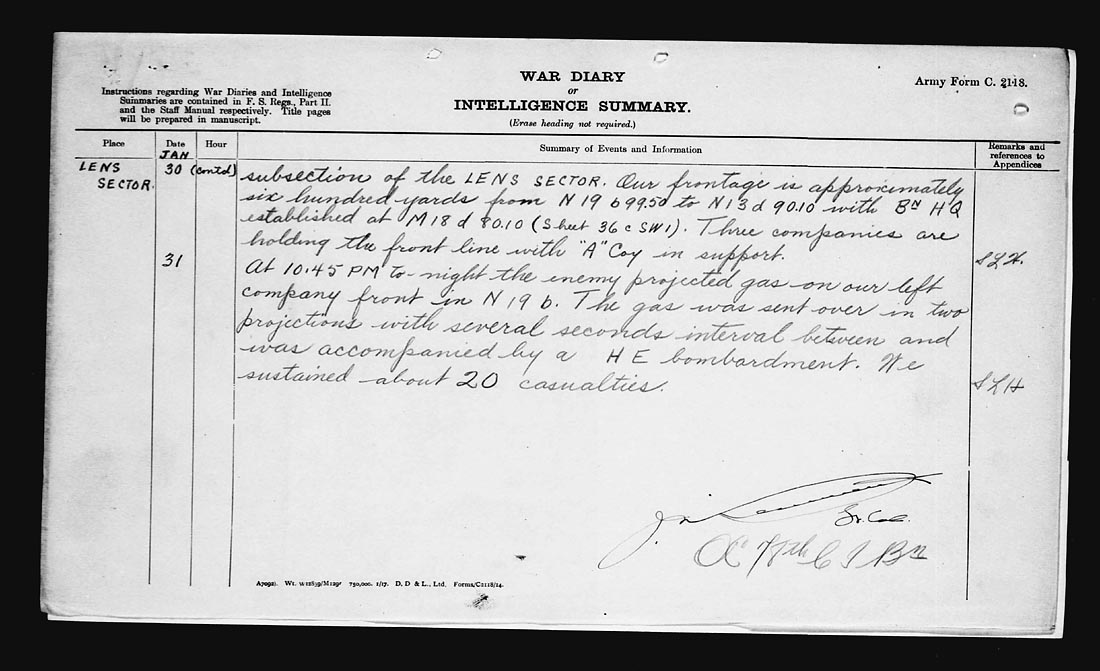 WAR DIARY
or
INTELLIGENCE SUMMARY.
(Erase heading not required.)
Army Form C. 2118.
Instructions regarding War Diaries and Intelligence
Summaries are contained in F. S. Regs., Part II.
and the Staff Manual respectively. Title pages
will be prepared in manuscript.
Place Date Hour Summary of Events and Information Remarks and references to Appendices
JAN
LENS SECTOR. 30 (contd) subsection of the LENS SECTOR. Our frontage is approximately
six hundred yards from N 19 b 99.50 to N 13 d 90.10 with Bn HQ
established at M 18 d 80.10 (Sheet 36 c SW 1). Three companies are
holding the front line with "A" Coy in support. SLH.
31 At 10.45 PM to-night the enemy projected gas on our left
company front in N 19 b. The gas was sent over in two
projections with several seconds interval between and
was accompanied by a H E bombardment. We
sustained about 20 casualties. SLH
Lt. Col.
OC 78th C I Bn
A7092). Wt. W12839/M1297 750,000. 1/17. D. D & L., Ltd. Forms/C2118/14.